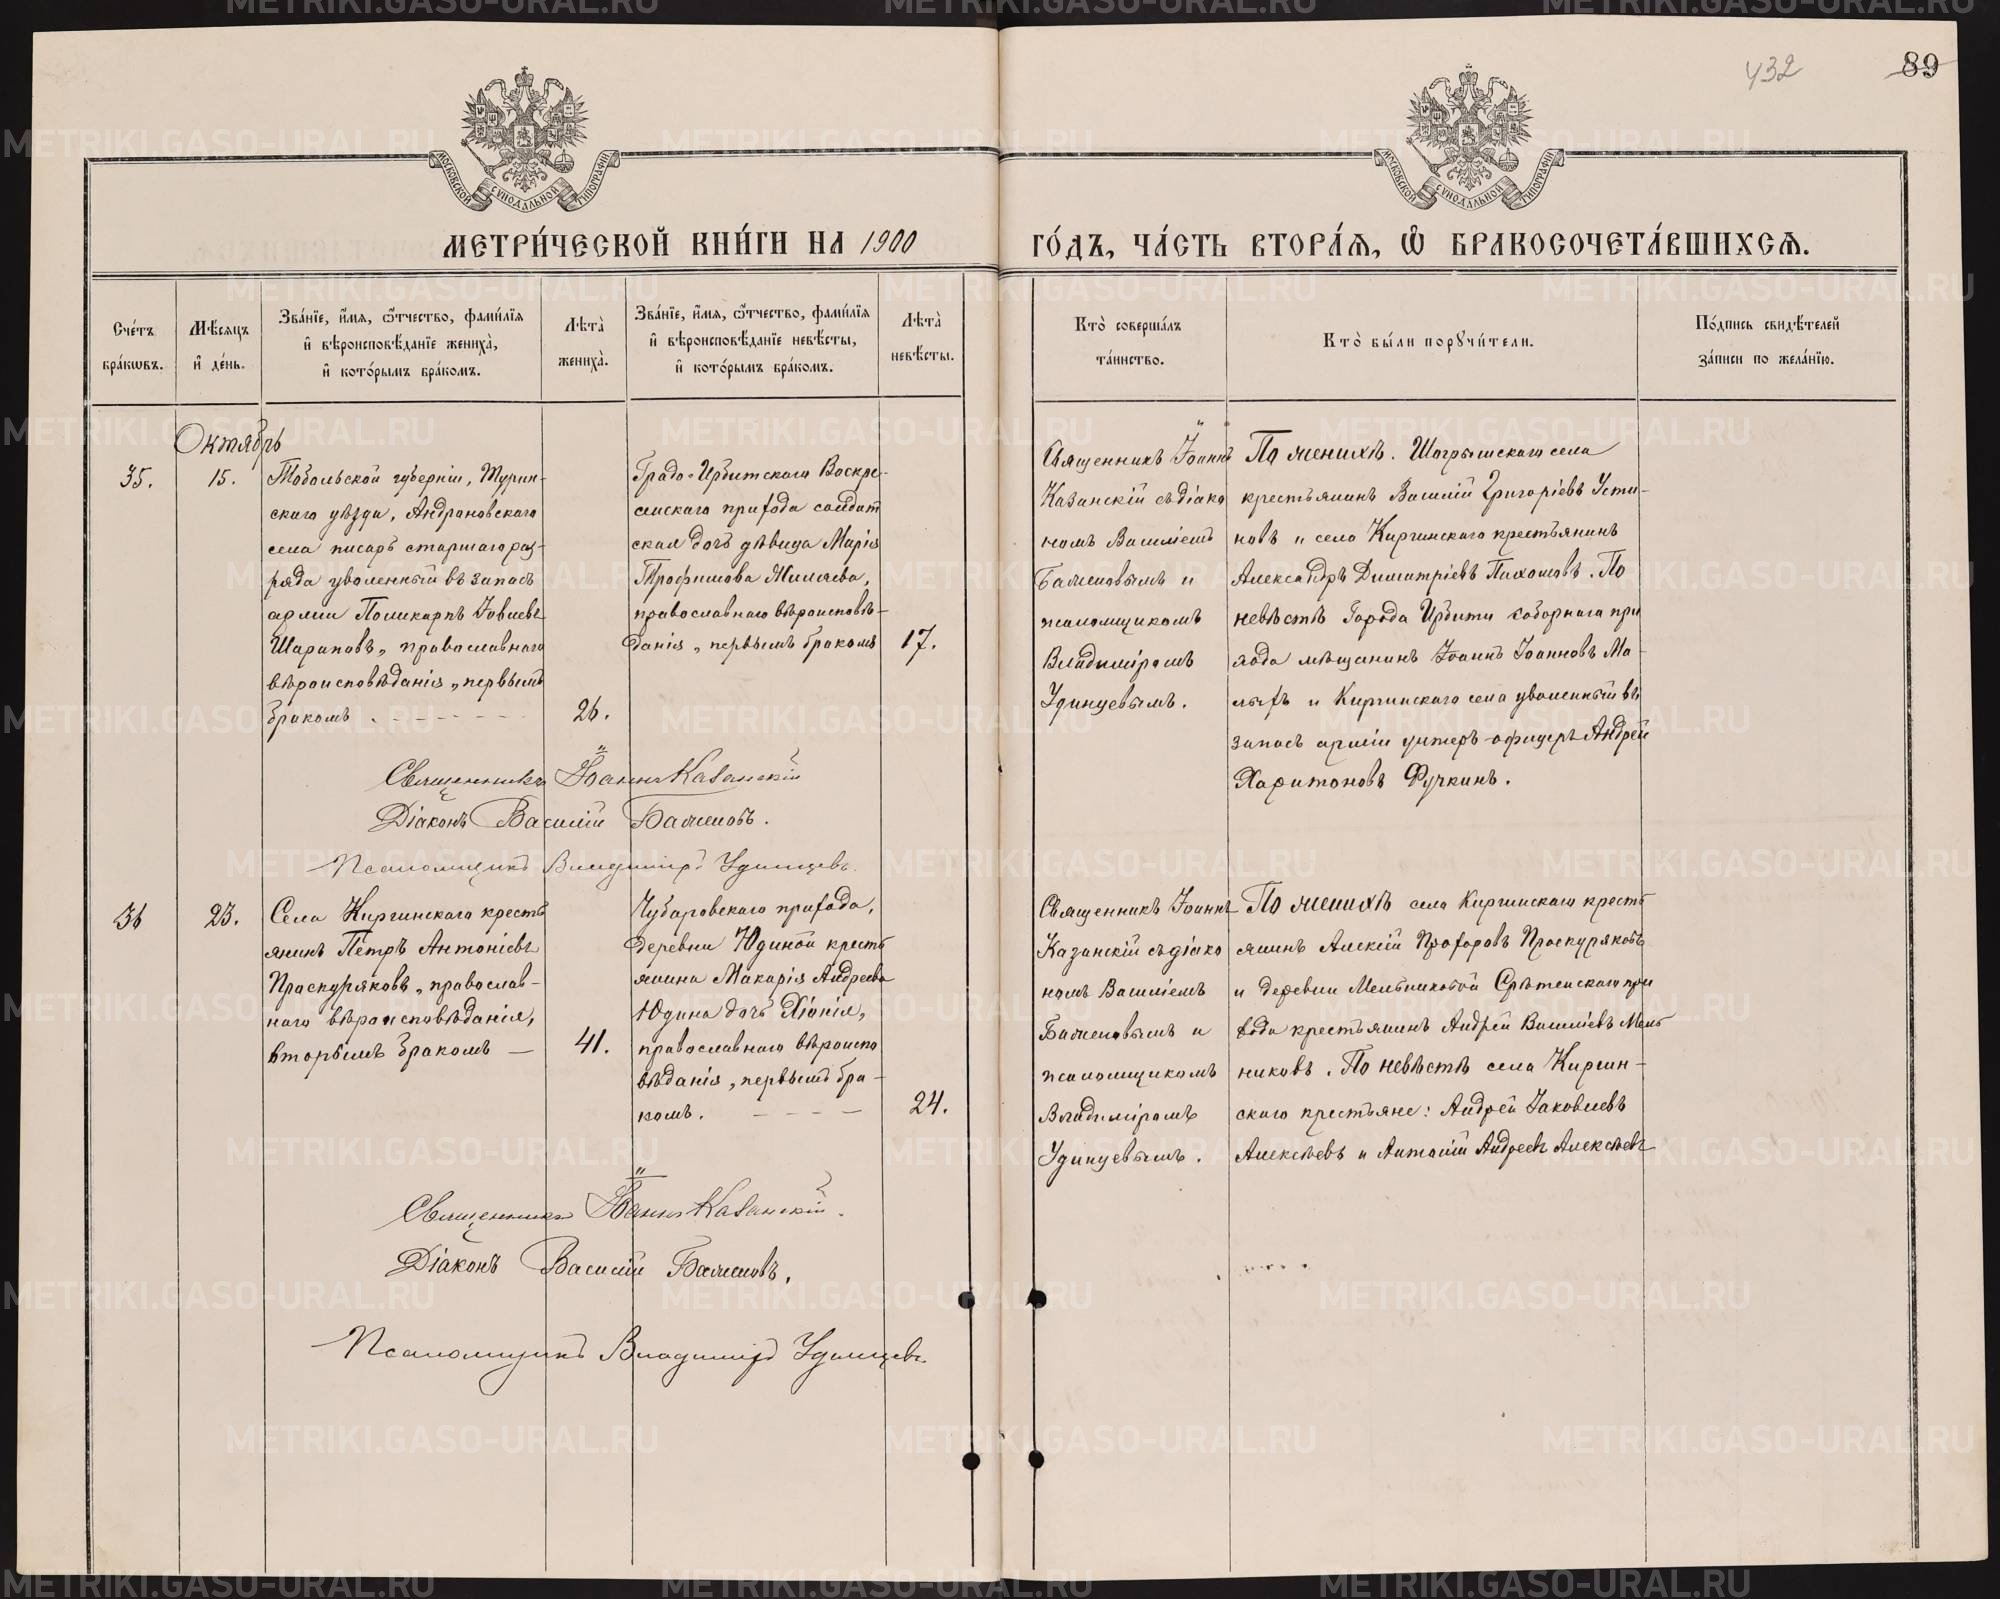 432
89
МОСКОВСКОЙ СУНОДАЛЬНОЙ ТИПОГРАФІИ
МОСКОВСКОЙ СУНОДАЛЬНОЙ ТИПОГРАФІИ
МЕТРИ́ЧЕСКОЙ КНИ́ГИ НА 1900
ГО́ДЪ, ЧА́СТЬ ВТОРА́Я, Ѽ БРАКОСОЧЕТА́ВШИХСЯ.
Сче́тъ
бра́кωвъ.
Мѣ́сяцъ
и҆ де́нь.
Зва́нїе, и҆́мя, ѻ҆́тчество, фами́лїя
и҆ вѣроисповѣ́данїе жениха̀,
и҆ кото́рымъ бра́комъ.
Лѣ́та̀
жениха̀.
Зва́нїе, и҆́мя, ѻ҆́тчество, фами́лїя
и҆ вѣроисповѣ́данїе невѣ́сты,
и҆ кото́рымъ бра́комъ.
Лѣ́та̀
невѣ́сты.
Кто̀ соверша́лъ
та́инство.
Кто̀ бы́ли порꙋчи́тели.
По́дпись свидѣ́телей
за́писи по жела́нїю.
Октябрь
35.
15.
Тобольской губерніи, Турин-
скаго уѣзда, Андроновскаго
села писарь старшаго раз-
ряда уволенный въ запасъ
арміи Поликарпъ Іовлевъ
Шараповъ, православнаго
вѣроисповѣданія, первымъ
бракомъ
26.
Градо-Ирбитскаго Воскре-
сенскаго прихода солдат
ская дочь дѣвица Марія
Трофимова Миляева,
православнаго вѣроисповѣ-
данія, первымъ бракомъ
17.
Священникъ Іоаннъ
Казанскій съ діако
номъ Василіемъ
Баженовымъ и
псаломщикомъ
Владиміромъ
Удинцевымъ.
По женихѣ. Шогрышскаго села
крестьянинъ Василій Григоріевъ Усти-
новъ и села Киргинскаго крестьянинъ
Александръ Димитріевъ Пахомовъ. По
невѣстѣ Города Ирбити соборнаго при
хода мѣщанинъ Іоаннъ Іоанновъ Ма-
лыхъ и Киргинскаго села уволенный въ
запасъ арміи унтеръ-офицеръ Андрей
Харитоновъ Фучкинъ.
Священникъ Іоаннъ Казанскій
Діаконъ Василій Баженовъ.
Псаломщикъ Владиміръ Удинцевъ.
36
23.
Села Киргинскаго кресть
янинъ Петръ Антоніевъ
Проскуряковъ, православ-
наго вѣроисповѣданія,
вторымъ бракомъ —
41.
Чубаровскаго прихода,
деревни Юдиной кресть
янина Макарія Андреева
Юдина дочь Хіонія,
православнаго вѣроиспо
вѣданія, первымъ бра-
комъ.
24.
Священникъ Іоаннъ
Казанскій съ діако
номъ Василіемъ
Баженовымъ и
псаломщикомъ
Владиміромъ
Удинцевымъ.
По женихѣ села Киргинскаго кресть
янинъ Алексій Прохоровъ Проскуряковъ
и деревни Мельниковой Срѣтенскаго при
хода крестьянинъ Андрей Василіевъ Мель
никовъ. По невѣстѣ села Киргин-
скаго крестьяне: Андрей Іаковлевъ
Алексѣевъ и Антоній Андреевъ Алексѣевъ
Священникъ Іоаннъ Казанскій.
Діаконъ Василій Баженовъ.
Псаломщикъ Владиміръ Удинцевъ.
METRIKI.GASO-URAL.RU